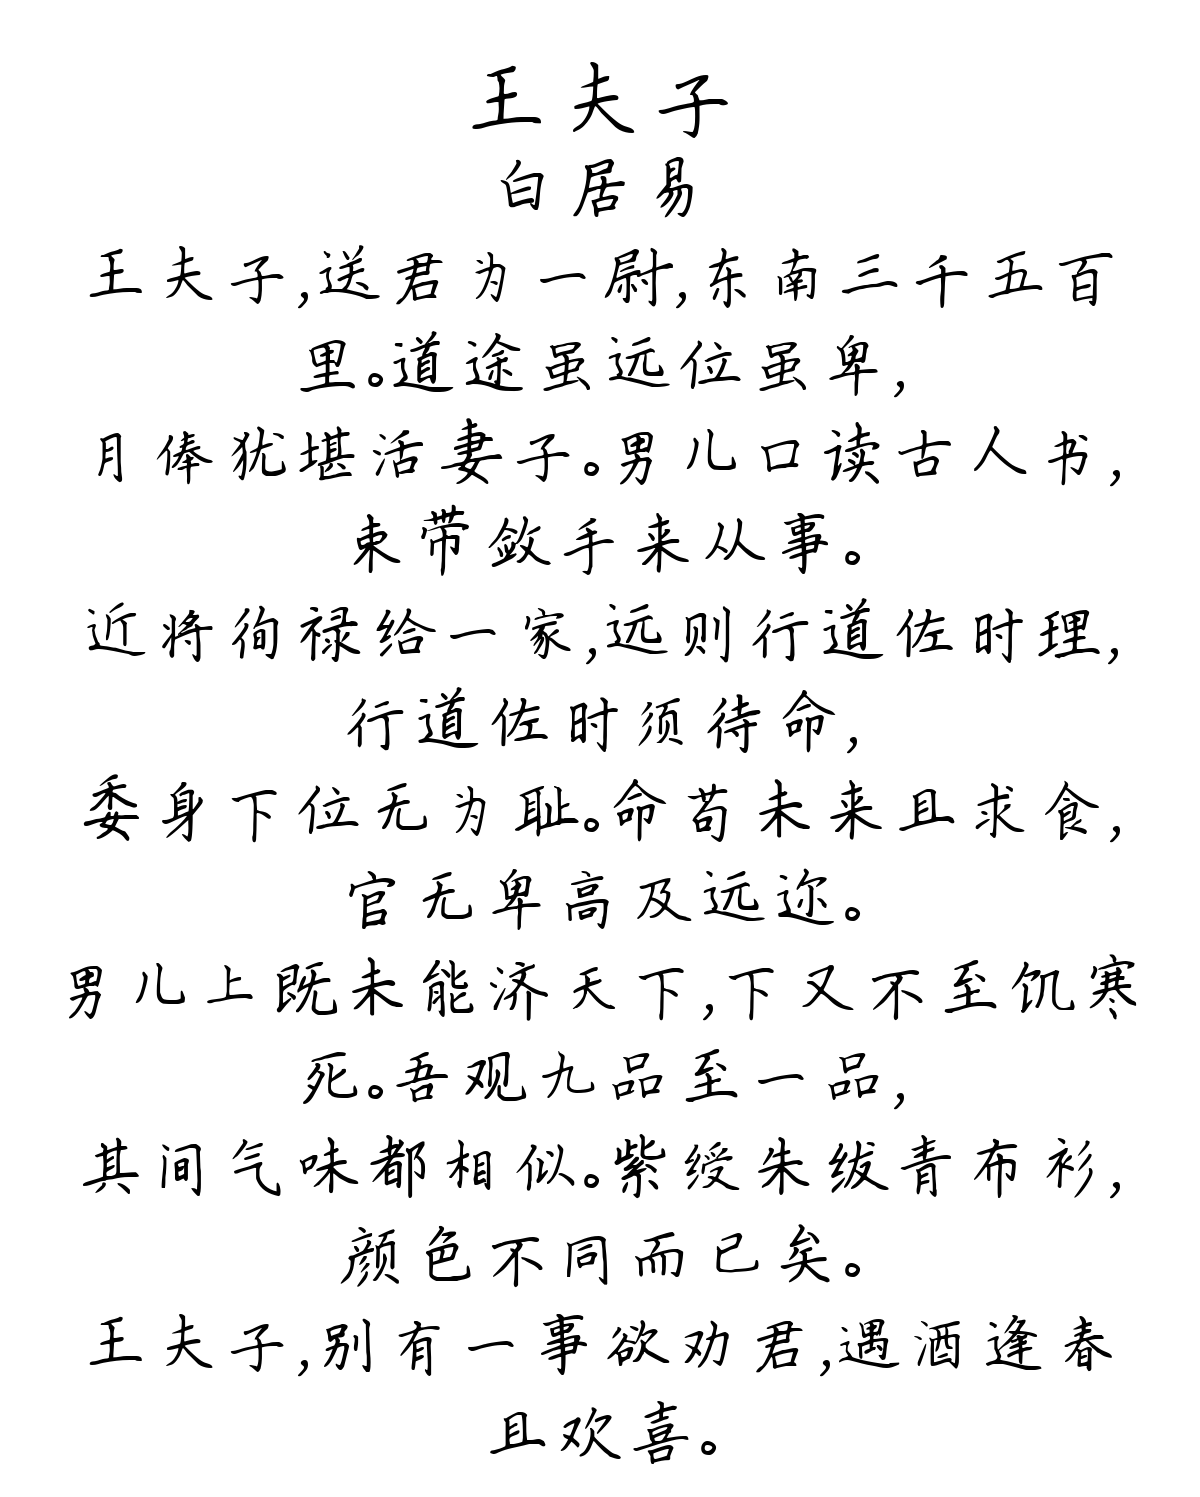 王夫子
白居易
王夫子,送君为一尉,东南三千五百
里。道途虽远位虽卑,
月俸犹堪活妻子。男儿口读古人书,
束带敛手来从事。
近将徇禄给一家,远则行道佐时理,
行道佐时须待命,
委身下位无为耻。命苟未来且求食,
官无卑高及远迩。
男儿上既未能济天下,下又不至饥寒
死。吾观九品至一品,
其间气味都相似。紫绶朱绂青布衫,
颜色不同而已矣。
王夫子,别有一事欲劝君,遇酒逢春
且欢喜。